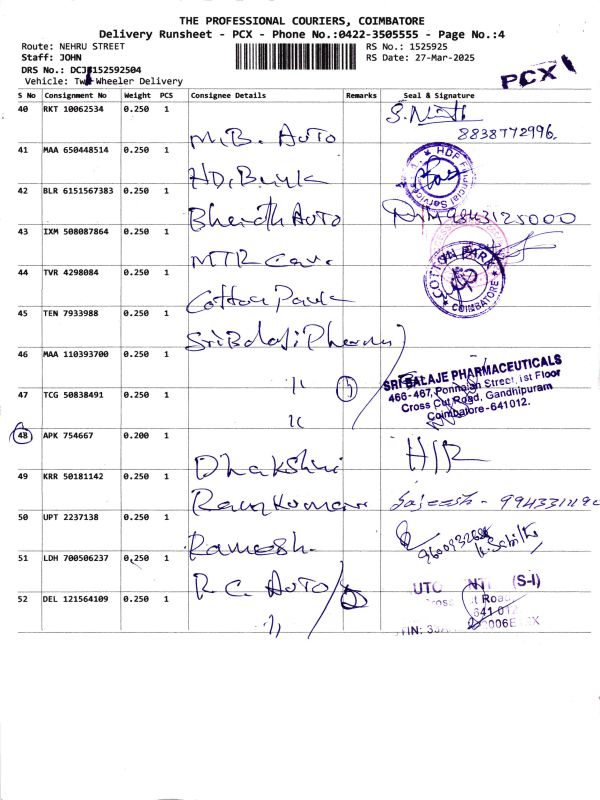 THE PROFESSIONAL COURIERS, COIMBATORE
Delivery Runsheet - PCX - Phone No.:0422-3505555 - Page No.:4
Route: NEHRU STREET
RS No.: 1525925
Staff: JOHN
RS Date: 27-Mar-2025
DRS No.: DCJ 152592504
Vehicle: Two Wheeler Delivery
PCX 1
S No Consignment No Weight PCS Consignee Details Remarks Seal & Signature
40 RKT 10062534 0.250 1
M.B. Auto
8838772996.
41 MAA 650448514 0.250 1
HDF Financial Services
42 BLR 6151567383 0.250 1
Bharath Auto
9843125000
43 IXM 508087864 0.250 1
MTR
44 TVR 4298084 0.250 1
Cotton Park
COTTON PARK
COIMBATORE
45 TEN 7933988 0.250 1
Sri Balaji Pharma
46 MAA 110393700 0.250 1
11
SRI BALAJE PHARMACEUTICALS
466-467, Ponnaian Street, 1st Floor
Cross Cut Road, Gandhipuram
Coimbatore-641012.
47 TCG 50838491 0.250 1
11
48 APK 754667 0.200 1
Dhakshni
49 KRR 50181142 0.250 1
Ramkumar
Sajeesh -
50 UPT 2237138 0.250 1
Ramesh.
51 LDH 700506237 0.250 1
R.C. Auto
(S-I)
52 DEL 121564109 0.250 1
11